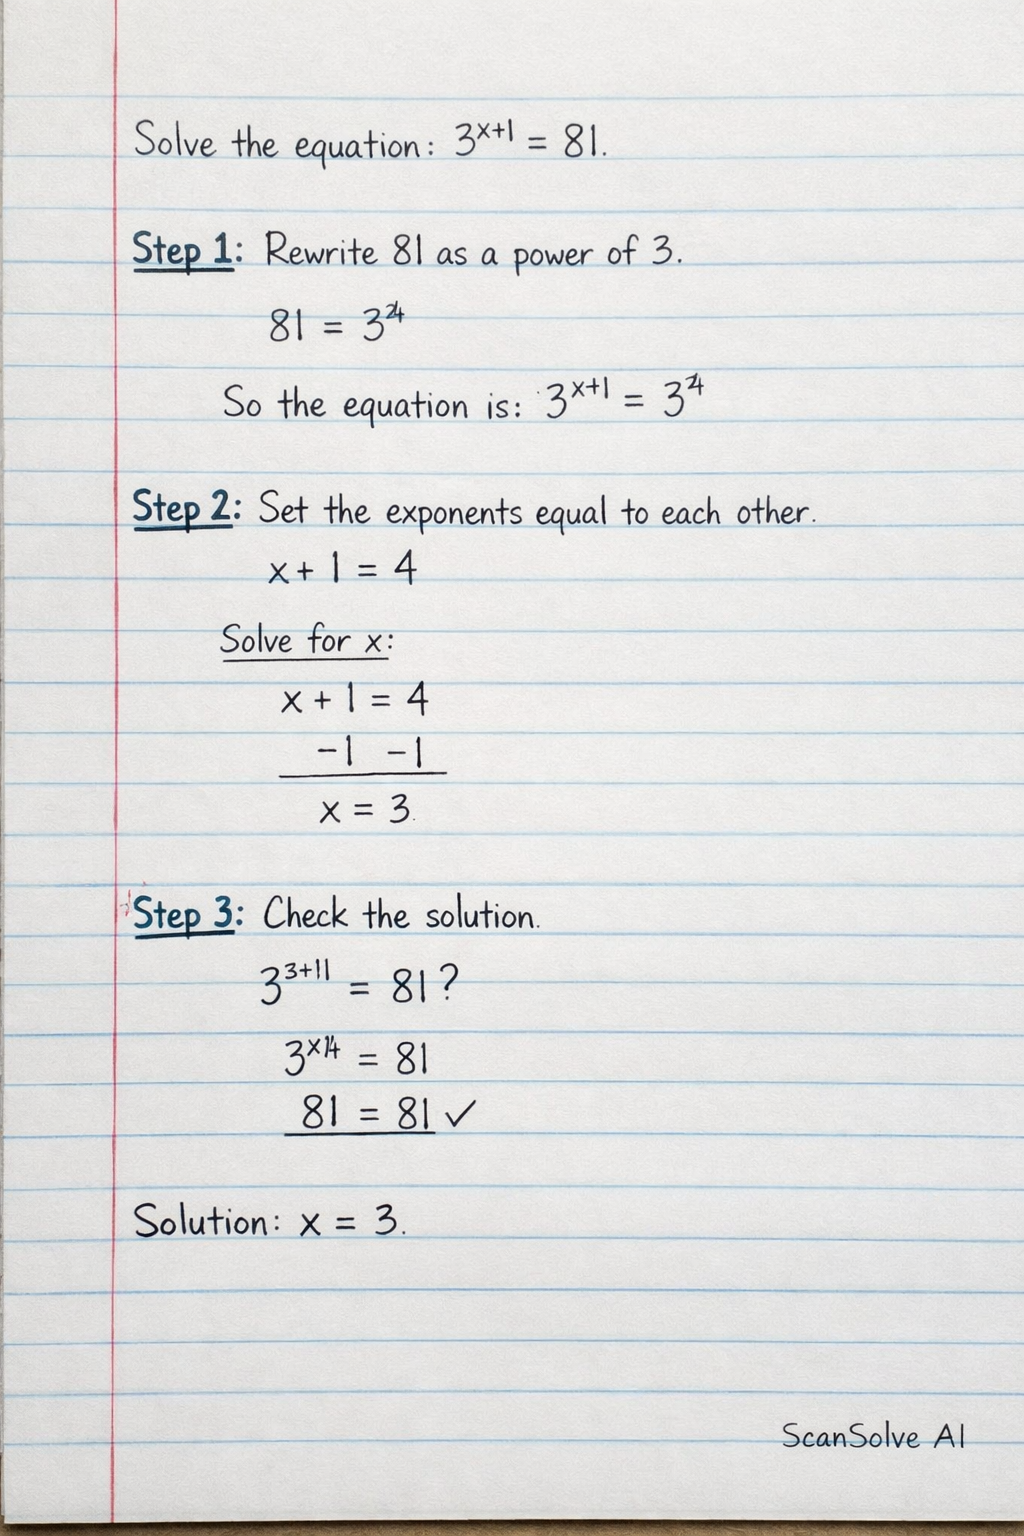 Solve the equation: 3^{x+1} = 81.
Step 1: Rewrite 81 as a power of 3.
81 = 3^4
So the equation is: 3^{x+1} = 3^4
Step 2: Set the exponents equal to each other.
x + 1 = 4
Solve for x:
x + 1 = 4
-1 -1
x = 3.
Step 3: Check the solution.
3^{3+11} = 81?
3^{x14} = 81
81 = 81 ✓
Solution: x = 3.
ScanSolve AI